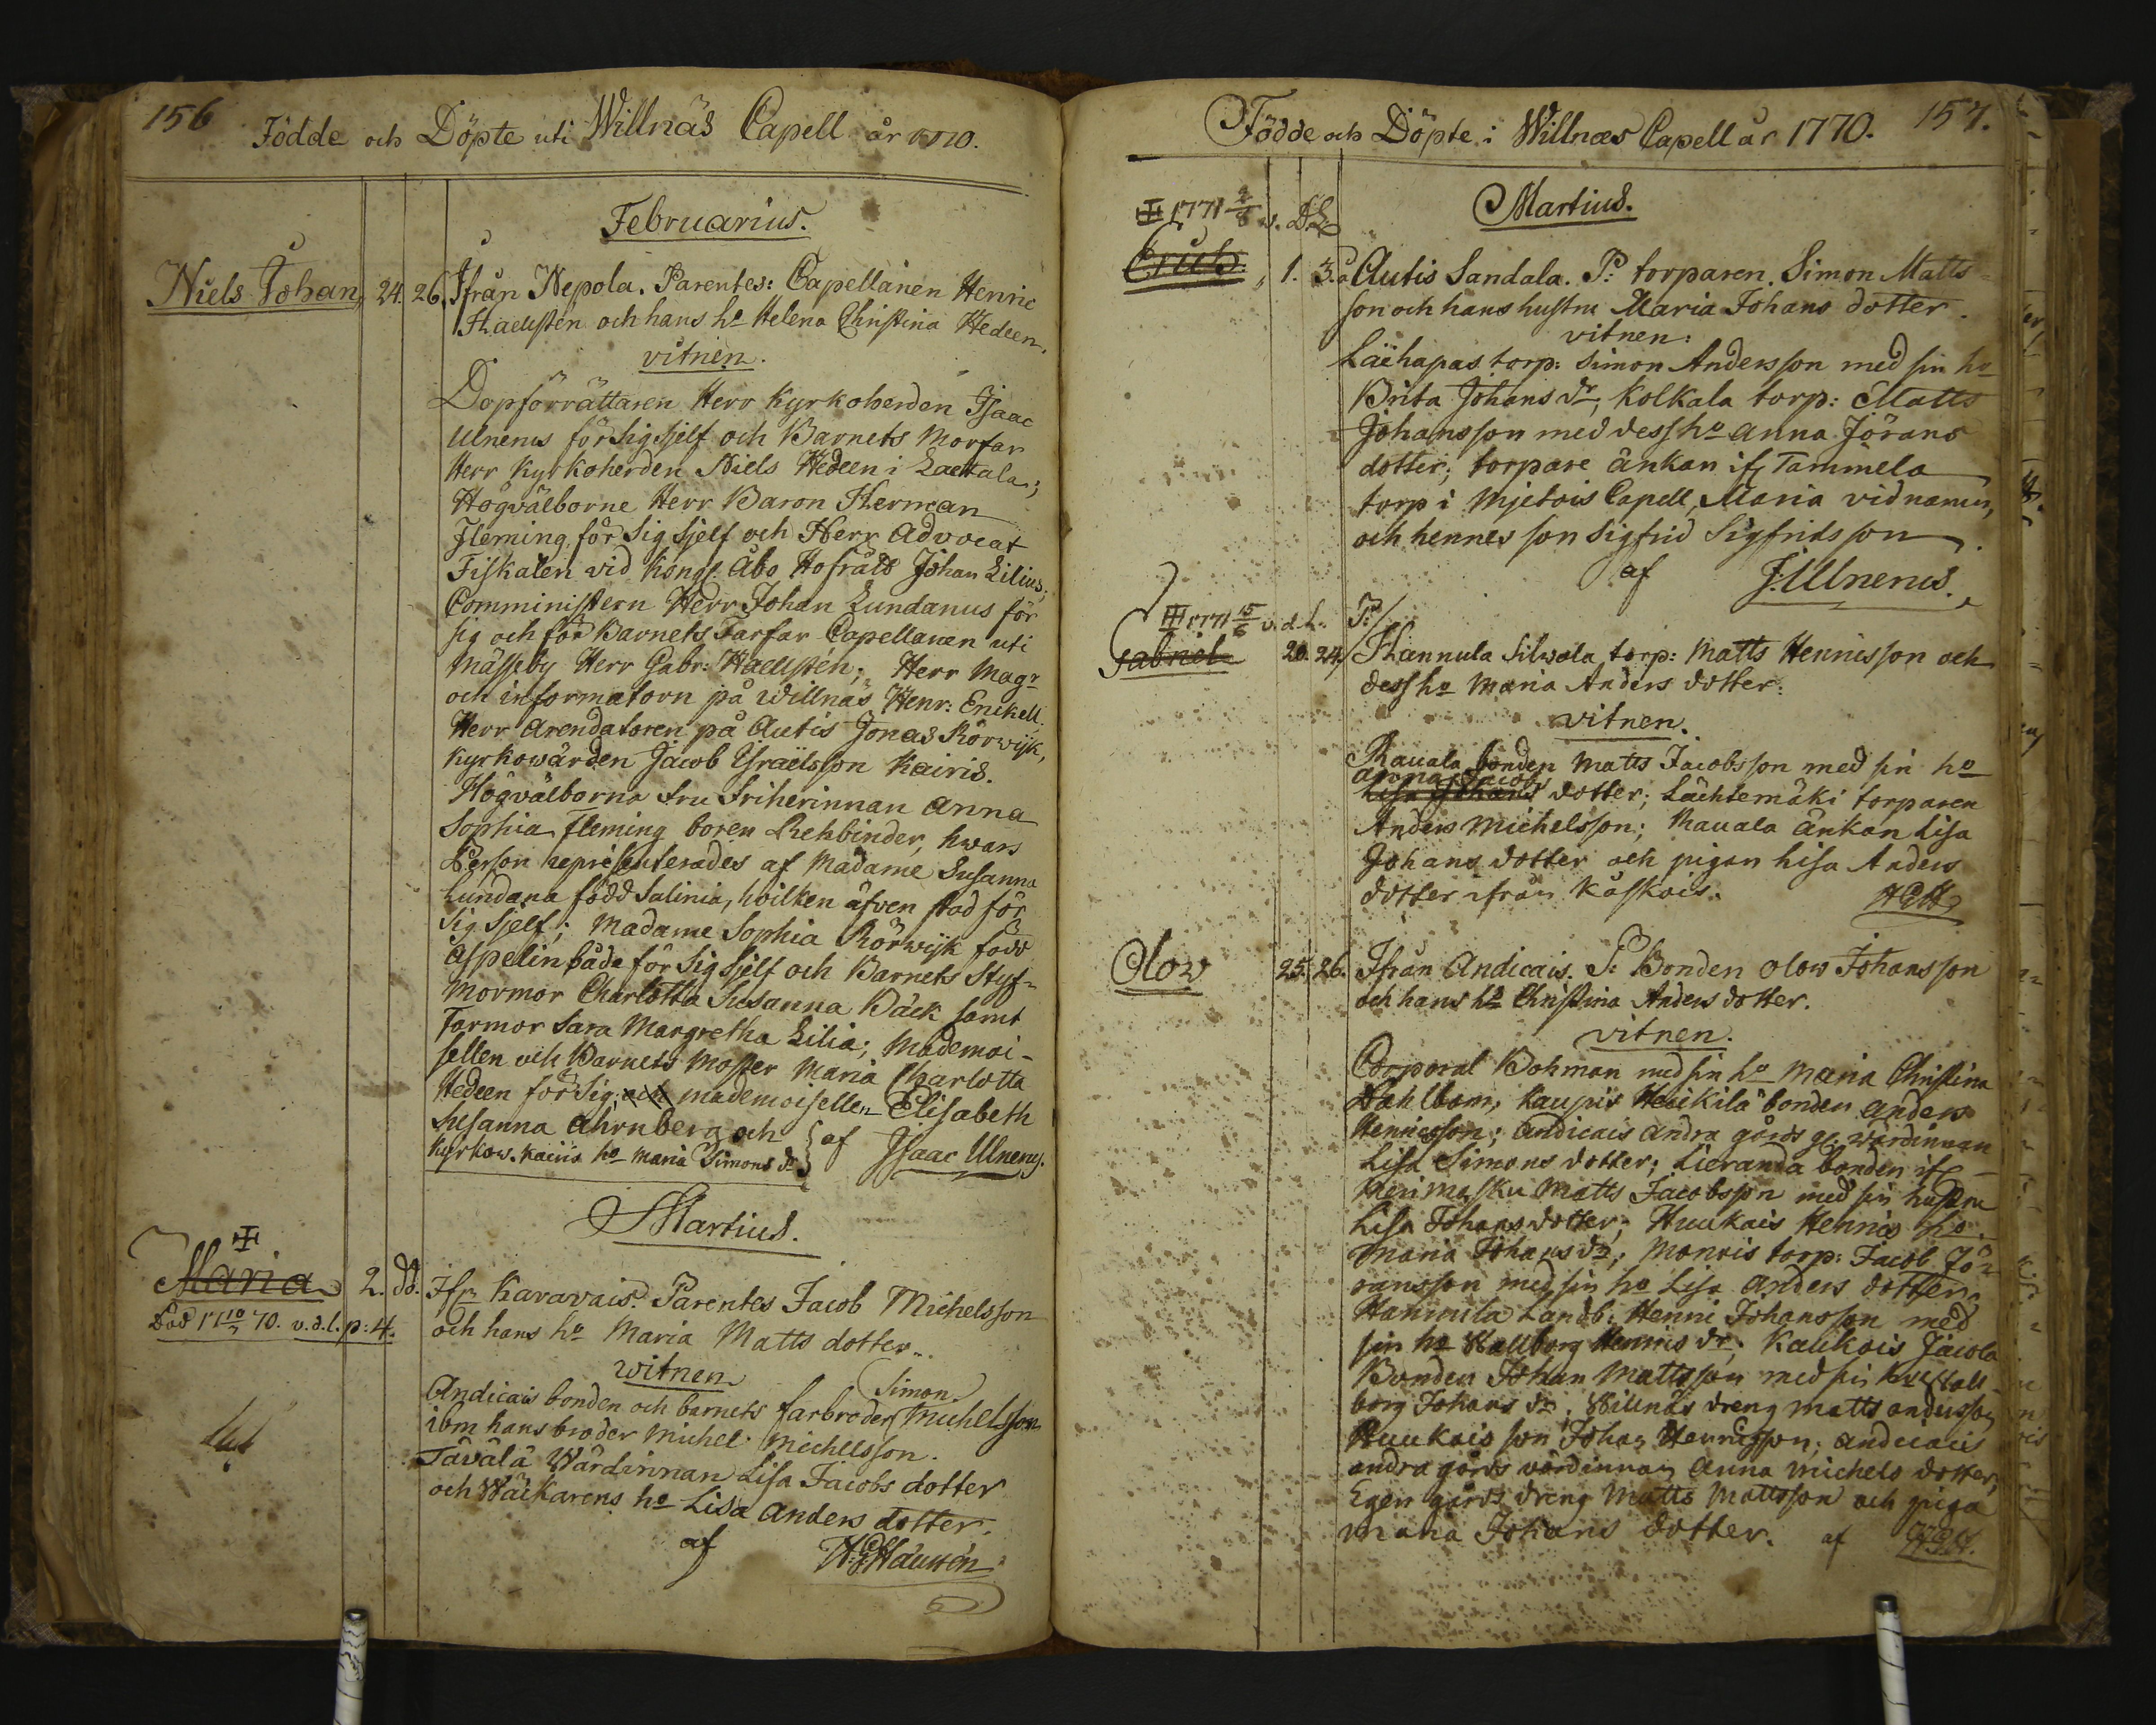 156
Födde och Döpte uti Willnäs Capell år 1770.
Februarius.
Niels Johan 24. 26. Ifrån Nepola. Parentes: Capellanen Henric
Haellstén och hans ho Helena Christina Hedeen.
vitnen.
Dopförrättaren Herr Kyrkoherden Isaac
Ulnerus för sig sjelf och Barnets Morfar
Herr Kyrkoherden Niels Hedeen i Laettala;
Högvälborne Herr Baron Herman
Fleming för sig sjelf och Herr Advocat
Fiskalen vid Kongl. Åbo Hofrätt Johan Lilius;
Comministern Herr Johan Lundanus för
sig och för Barnets Farfar Capellanen uti
Mässeby Herr Gabr: Haellstén; Herr Magr
och informatorn på Willnäs Henr: Enckell.
Herr Arendatoren på Autis Jonas Rörwijk,
Kyrkowärden Jacob Israelsson Kairis.
Högvälborna fru Friherinnan Anna
Sophia Fleming boren Rehbinder, hwars
Person representerades af Madame Susanna
Lundana född Salinia, hvilken äfven stod för
sig sjelf; Madame Sophia Rörwijk född
Aspelin både för sig sjelf och Barnets Styf-
mormor Charlotta Susanna Bäck samt
Farmor Sara Margretha Lilia; Mademoi-
sellen och Barnets Moster Maria Charlotta
Hedeen för sig, och mademoisellen Elisabeth
Susanna Ahrnberg och
Kyrkow. Kairis ho Maria Simons dr } af Isaac Ulnerus.
Martius.
Maria 2. dd. Ifr. Karavais. Parentes Jacob Michelsson
Död 17 10/3 70. v.d.l. p: 4.
och hans ho Maria Matts dotter.
witnen
Simon
Andicais bonden och barnets farbroder Michelsson
ibm hans broder Michel Michelsson.
Tävälä Wärdinnan Lisa Jacobs dotter
och Wäckarens ho Lisa Anders dotter.
af
157.
Födde och Döpte i Willnæs Capell år 1770.
Martius.
1771 2/6 v. d.L
Erich 1. 3. Autis Sandala. P: torparen Simon Matts-
son och hans hustru Maria Johans dotter.
vitnen:
Laihapas torp: Simon Andersson med sin ho
Brita Johans dr, Kolkala torp: Matts
Johansson med dess ho Anna Jörans
dotter; torpare änkan ifr Tammela
torp i Mjetois Capell, Maria vid namn,
och hennes son Sigfrid Sigfridsson
af J: Ulnerus.
1771 15/6 v.d.L. P:
Gabriel 20. 24. Hannula Silwola torp: Matts Henricsson och
dess ho Maria Anders dotter.
vitnen.
Rauala bonden Matts Jacobsson med sin ho
Anna Jacobs
Lisa Johans dotter; Lächtemäki torparen
Anders Michelsson; Rauala änkan Lisa
Johans dotter och pigan Lisa Anders
dotter ifrån Käskois.
Olow 25. 26. Ifrån Andicais. P: Bonden Olow Johansson
och hans ho Christina Anders dotter.
vitnen.
Corporal Bohman med sin ho Maria Christina
Dahlbom, Kaupis Heickilä bonden Anders
Henricsson; Andicais andra gårds gl. wärdinnan
Lisa Simons dotter; Lieranda bonden ifr
Merimasku Matts Jacobsson med sin hustru
Lisa Johans dotter; Huukais Henrics ho
Maria Johans dr; Monois torp: Jacob Jö-
ransson med sin ho Lisa Anders dotter.
Hannula Landb: Henric Johansson med
sin ho Wallborg Henrics dr; Kaukois Jacola
Bonden Johan Mattsson med sin ho Wall-
borg Johans dr. Willnäs dreng Matts Andersson
Huukais son Johan Henricsson; Andicais
andra gårds wärdinnan Anna Michels dotter,
Egen gårds dreng Matts Mattsson och piga
Maria Johans dotter. af